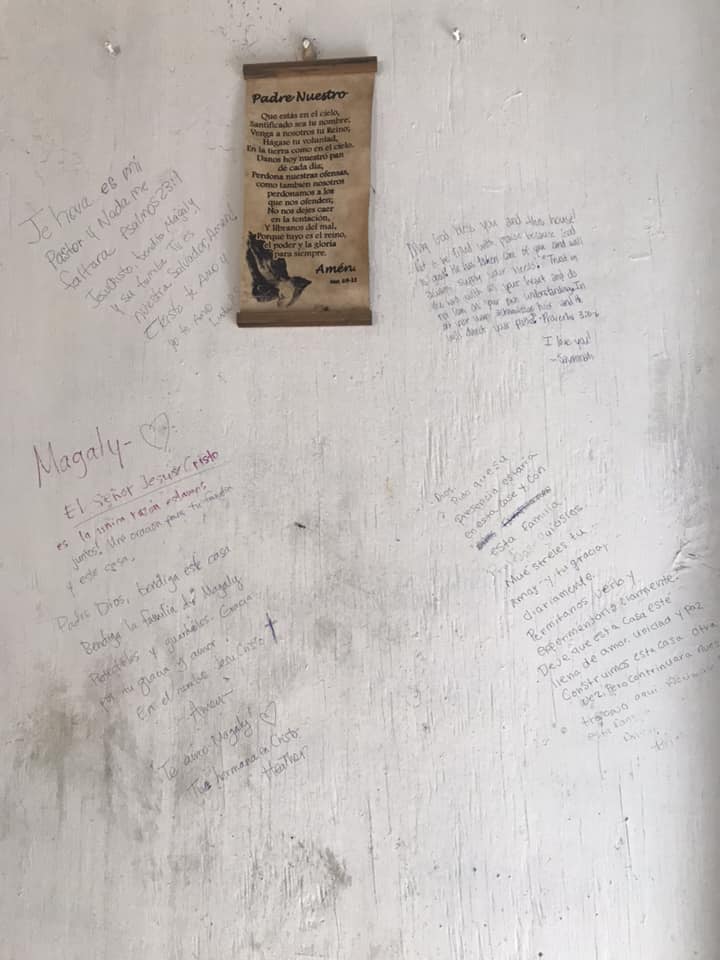 Padre Nuestro
Que estás en el cielo,
Santificado sea tu nombre;
Venga a nosotros tu Reino;
Hágase tu voluntad,
En la tierra como en el cielo.
Danos hoy nuestro pan
de cada día;
Perdona nuestras ofensas,
como también nosotros
perdonamos a los
que nos ofenden;
No nos dejes caer
en la tentación,
Y líbranos del mal,
Porque tuyo es el reino,
el poder y la gloria
para siempre.
Amén.
Jehova es mi
Pastor y Nada me
faltara Psalmos 23:1
Jesuchristo bendito Magaly
y su familia Tu es
nuestra Salvador, Amen!
Cristo te Amo y
yo te Amo
May God bless you and this house!
Let it be filled with praise because God
is good. He has taken care of you and will
always supply your needs. "Trust in
the Lord with all your heart and do
not lean on your own understanding. In
all your ways acknowledge him and he
will direct your paths." Proverbs 3:5-6
I love you!
~Savannah
Magaly-
El Señor Jesus Cristo
es la unica razon estamos
juntos! Una oracion para tu familia
y este casa.
Padre Dios, bendiga este casa
Bendiga la familia de Magaly
Protectelos y guardelos. Gracias
por tu gracia y amor.
En el nombre Jesu Cristo
-Amen-
Te amo Magaly!
Tu hermana in Cristo
Heather
Dios,
Pido que su
presencia estaria
en esta case y con
esta familia
Muéstreles tu
amor y tu gracia,
diariamente.
Permitanos verlo y
experimentarlo claramente.
Deje que esta casa esté
llena de amor, unidad y paz
Construimos esta casa otra
vez, pero continuara
trabajo aqui
esta familia